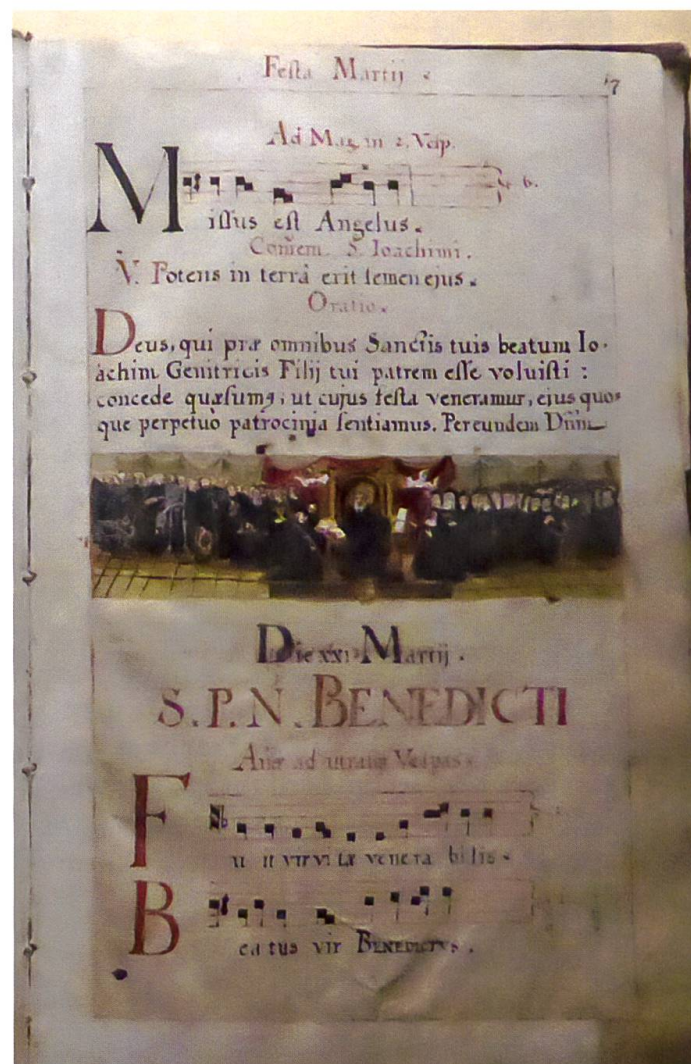 Festa Martij
17
Ad Mag. in 2. Vesp.
6.
Missus est Angelus.
Com̃em. S. Ioachimi.
V. Potens in terrâ erit semen ejus.
Oratio.
Deus, qui præ omnibus Sanctis tuis beatum Io-
achim Genitricis Filij tui patrem esse voluisti :
concede quæsumꝰ; ut cujus festa veneramur, ejus quo-
que perpetuò patrocinia sentiamus. Per eundem Dñm
Die xxi Martij.
S. P. N. BENEDICTI
ad Vespas.
Fu it vir vi tæ venera bilis.
Beatus vir BENEDICTVS.